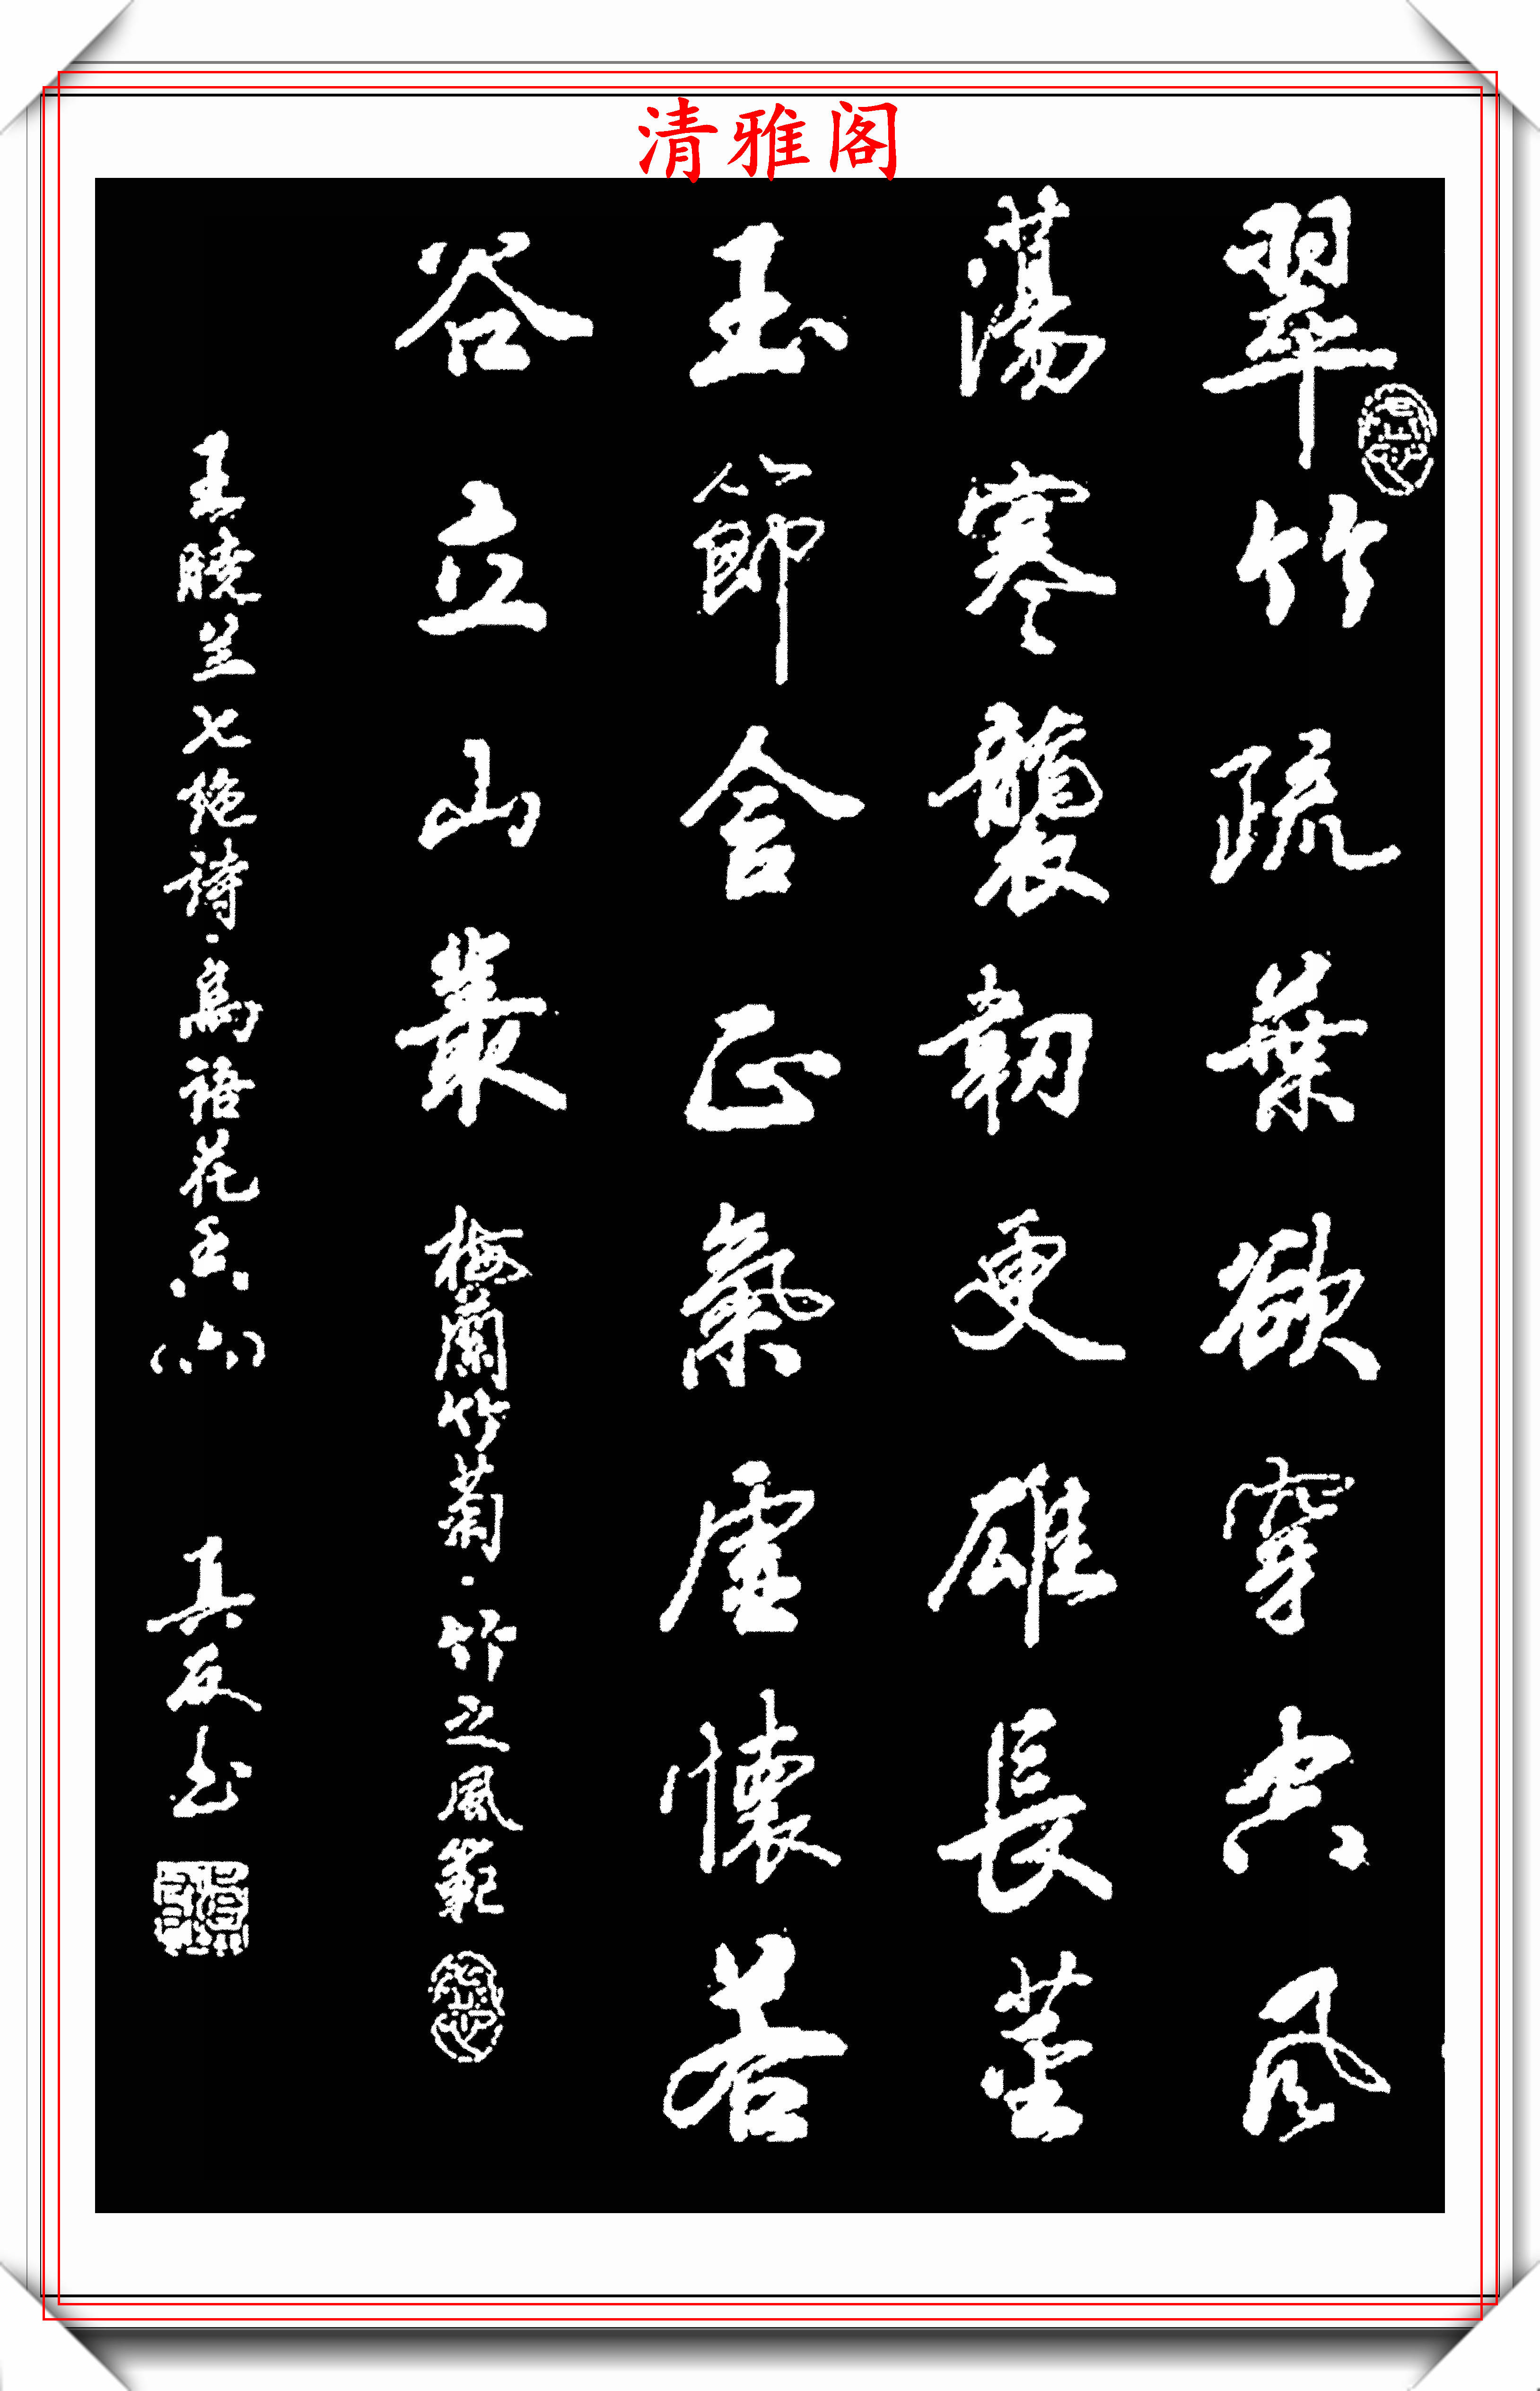 清雅阁
翠竹疏葉欲穿空風
蕩寒襲韌更雄長莖
玉節含正氣虛懷若
谷立山叢 梅蘭竹菊·竹之風範
王曉兰七绝詩·鳥語花香(六) 真友书